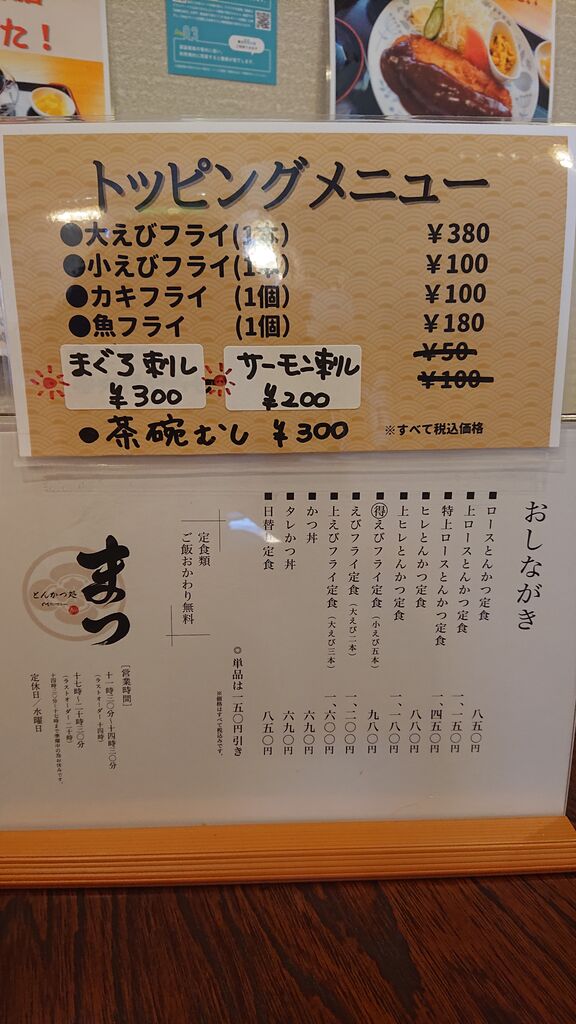 た！
トッピングメニュー
●大えびフライ(1本) ￥380
●小えびフライ(1本) ￥100
●カキフライ (1個) ￥100
●魚フライ (1個) ￥180
￥50
￥100
まぐろ刺し
￥300
サーモン刺し
￥200
●茶碗むし ￥300
※すべて税込価格
おしながき
■ロースとんかつ定食 八五〇円
■上ロースとんかつ定食 一、一五〇円
■特上ロースとんかつ定食 一、四五〇円
■ヒレとんかつ定食 八八〇円
■上ヒレとんかつ定食 一、一八〇円
■得えびフライ定食（小えび五本） 九八〇円
■えびフライ定食（大えび二本） 一、二〇〇円
■上えびフライ定食（大えび三本） 一、六〇〇円
■かつ丼 六九〇円
■タレかつ丼 六九〇円
■日替り定食 八五〇円
◎単品は一五〇円引き
※価格はすべて税込みです。
定食類
ご飯おかわり無料
とんかつ処
まつ
［営業時間］
十一時〇〇分〜十四時三〇分
（ラストオーダー十四時）
十七時〜二十時三〇分
（ラストオーダー二十時）
定休日／水曜日